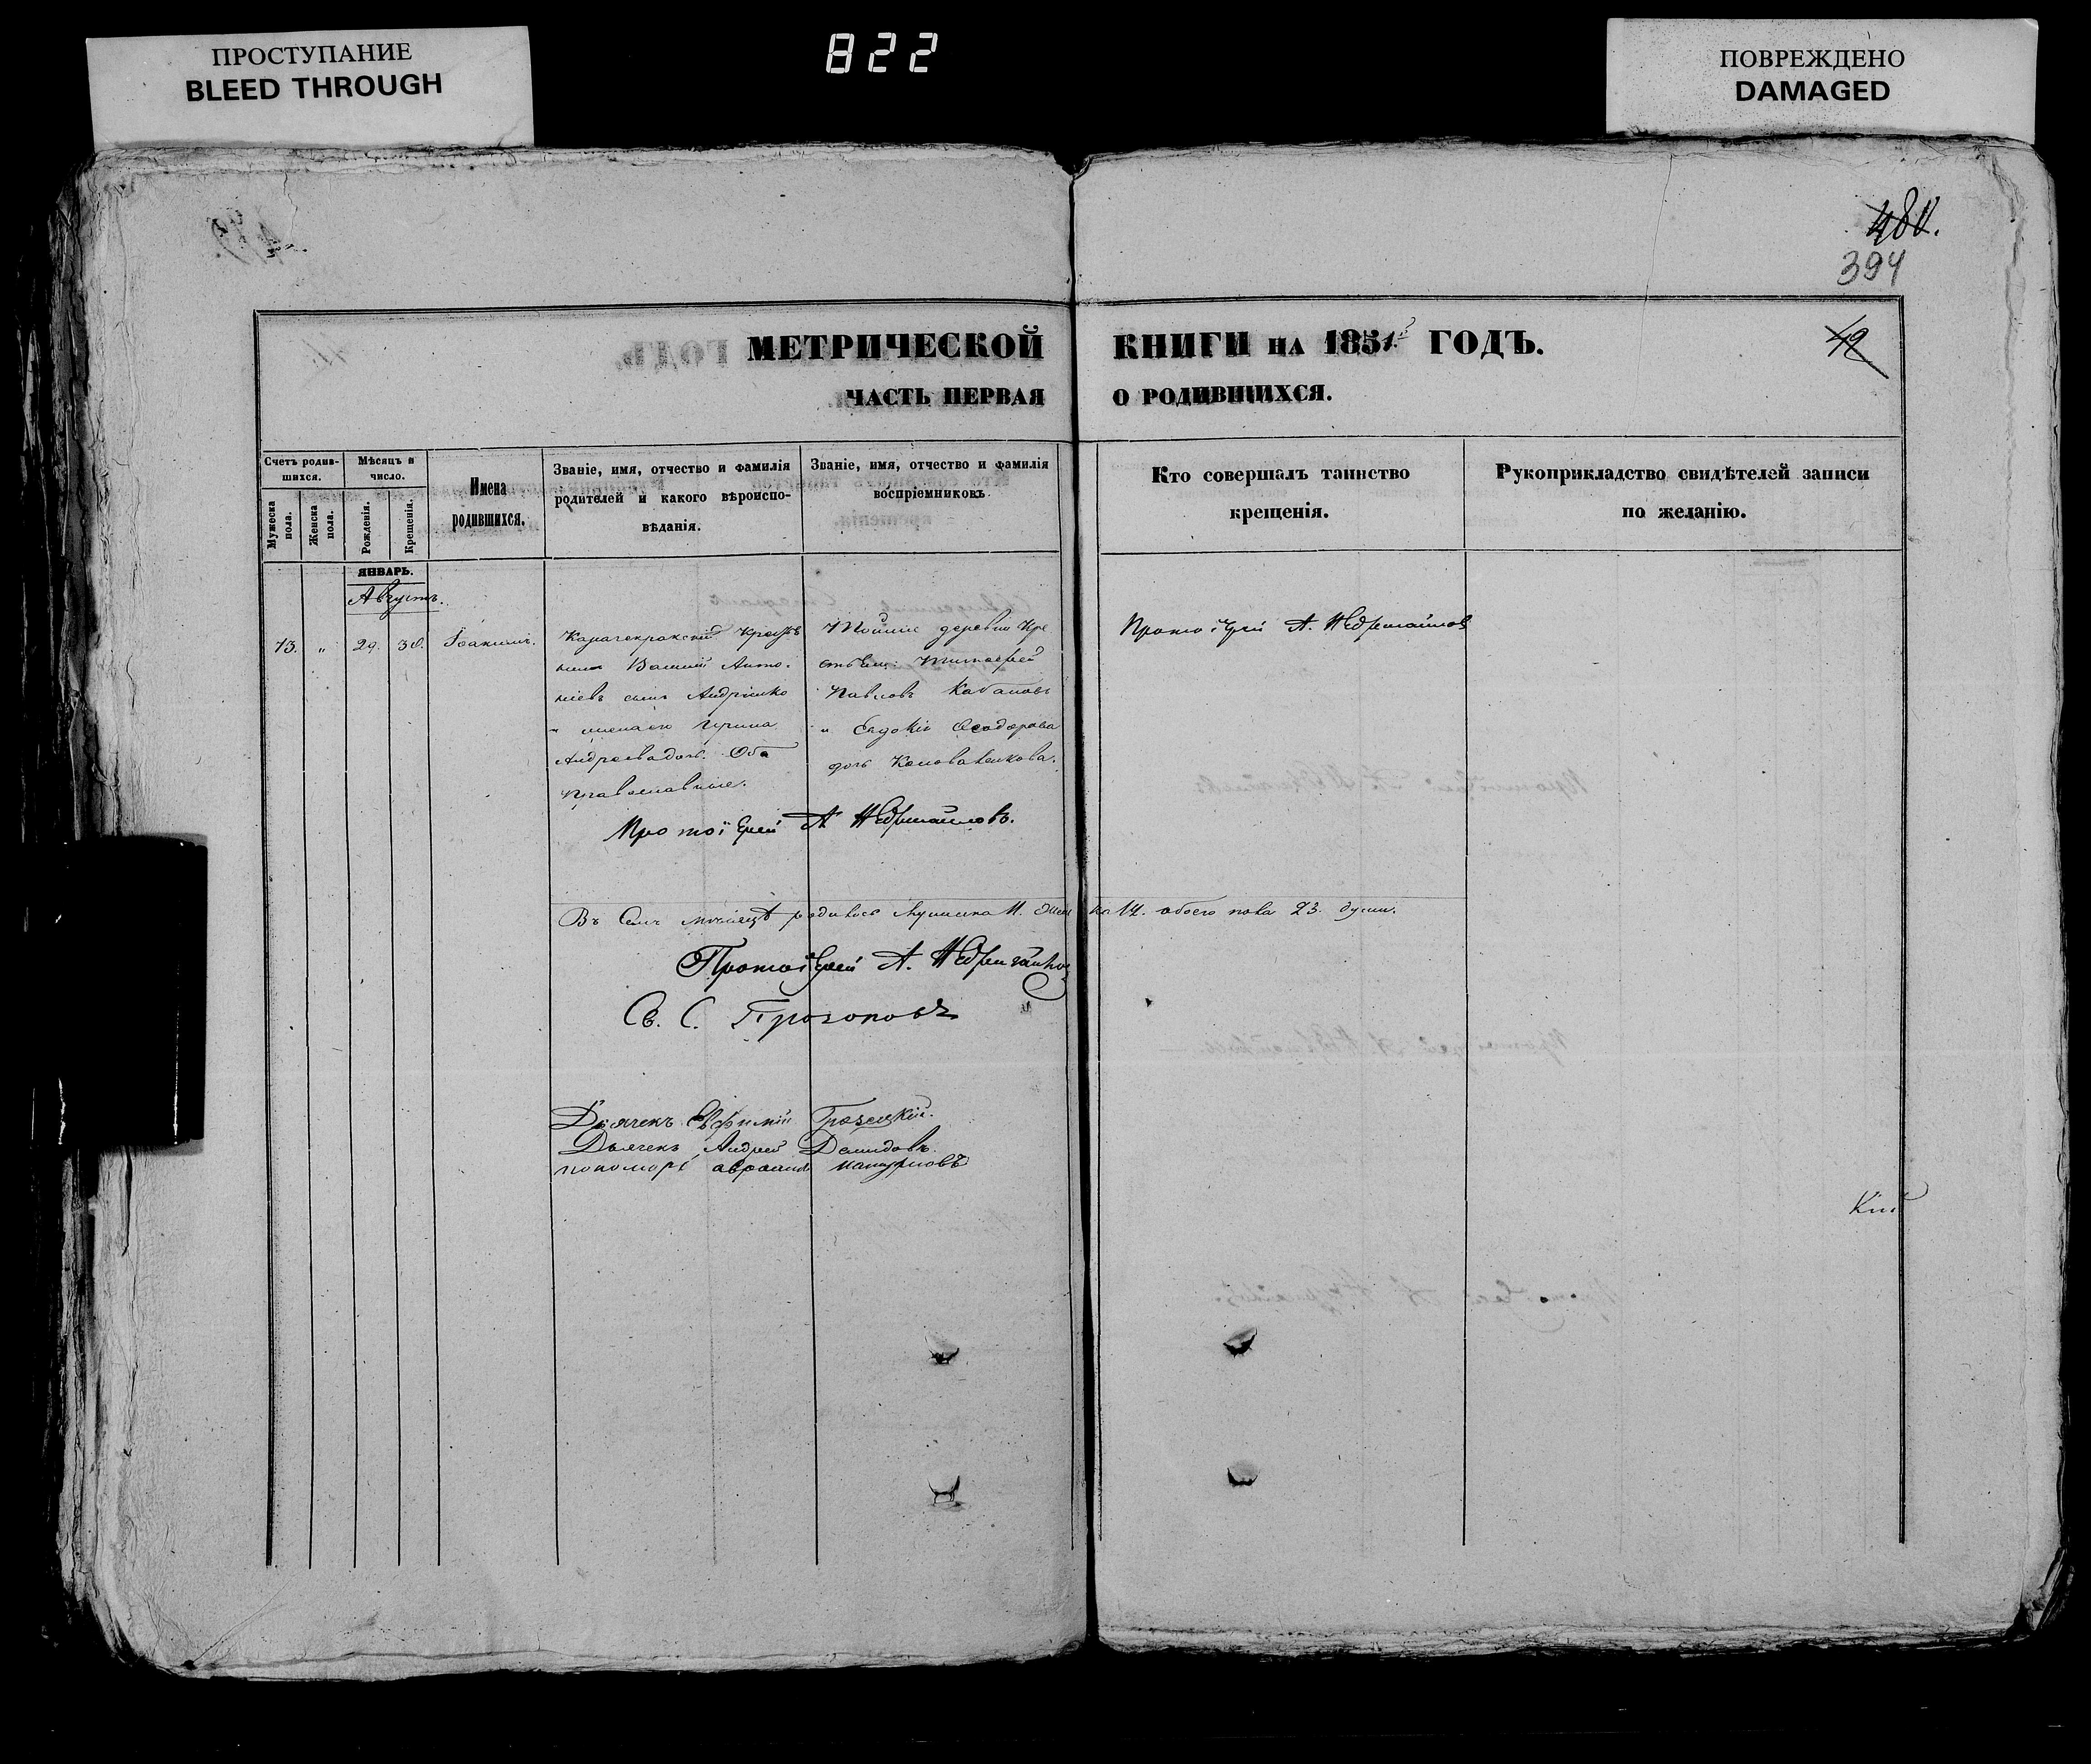 ПРОСТУПАНИЕ
BLEED THROUGH
822
ПОВРЕЖДЕНО
DAMAGED
394
МЕТРИЧЕСКОЙ КНИГИ НА 1851 ГОДЪ.
49
ЧАСТЬ ПЕРВАЯ О РОДИВШИХСЯ.
Счетъ родившихся.
Мужеска пола.
Женска пола.
Мѣсяцъ и число.
Рожденія.
Крещенія.
Имена родившихся.
Званіе, имя, отчество и фамилія
родителей и какого вѣроиспо-
вѣданія.
Званіе, имя, отчество и фамилія
воспріемниковъ.
Кто совершалъ таинство
крещенія.
Рукоприкладство свидѣтелей записи
по желанію.
ЯНВАРЬ.
Августъ.
73. " 29. 30. Іоакимъ.
Карачекракскій Крестья
нинъ Антo-
ніевъ сынъ Андріенко
и жена его
Андреева дочь. Оба
православные.
Тойже деревни Кре
Тимофей
Павловъ Кабановъ
и Евдокія Ѳеодорова
дочь Коноваленкова.
Протоіерей А.
Протоіерей А.
Въ семъ мѣсяцѣ родилось мужеска 11. женска 12. обоего пола 23. души.
Протоіерей А.
Св. С. Прокоповъ
Дьячекъ Евфимій
Дьячекъ Андрей Демидовъ.
пономарь
Кій